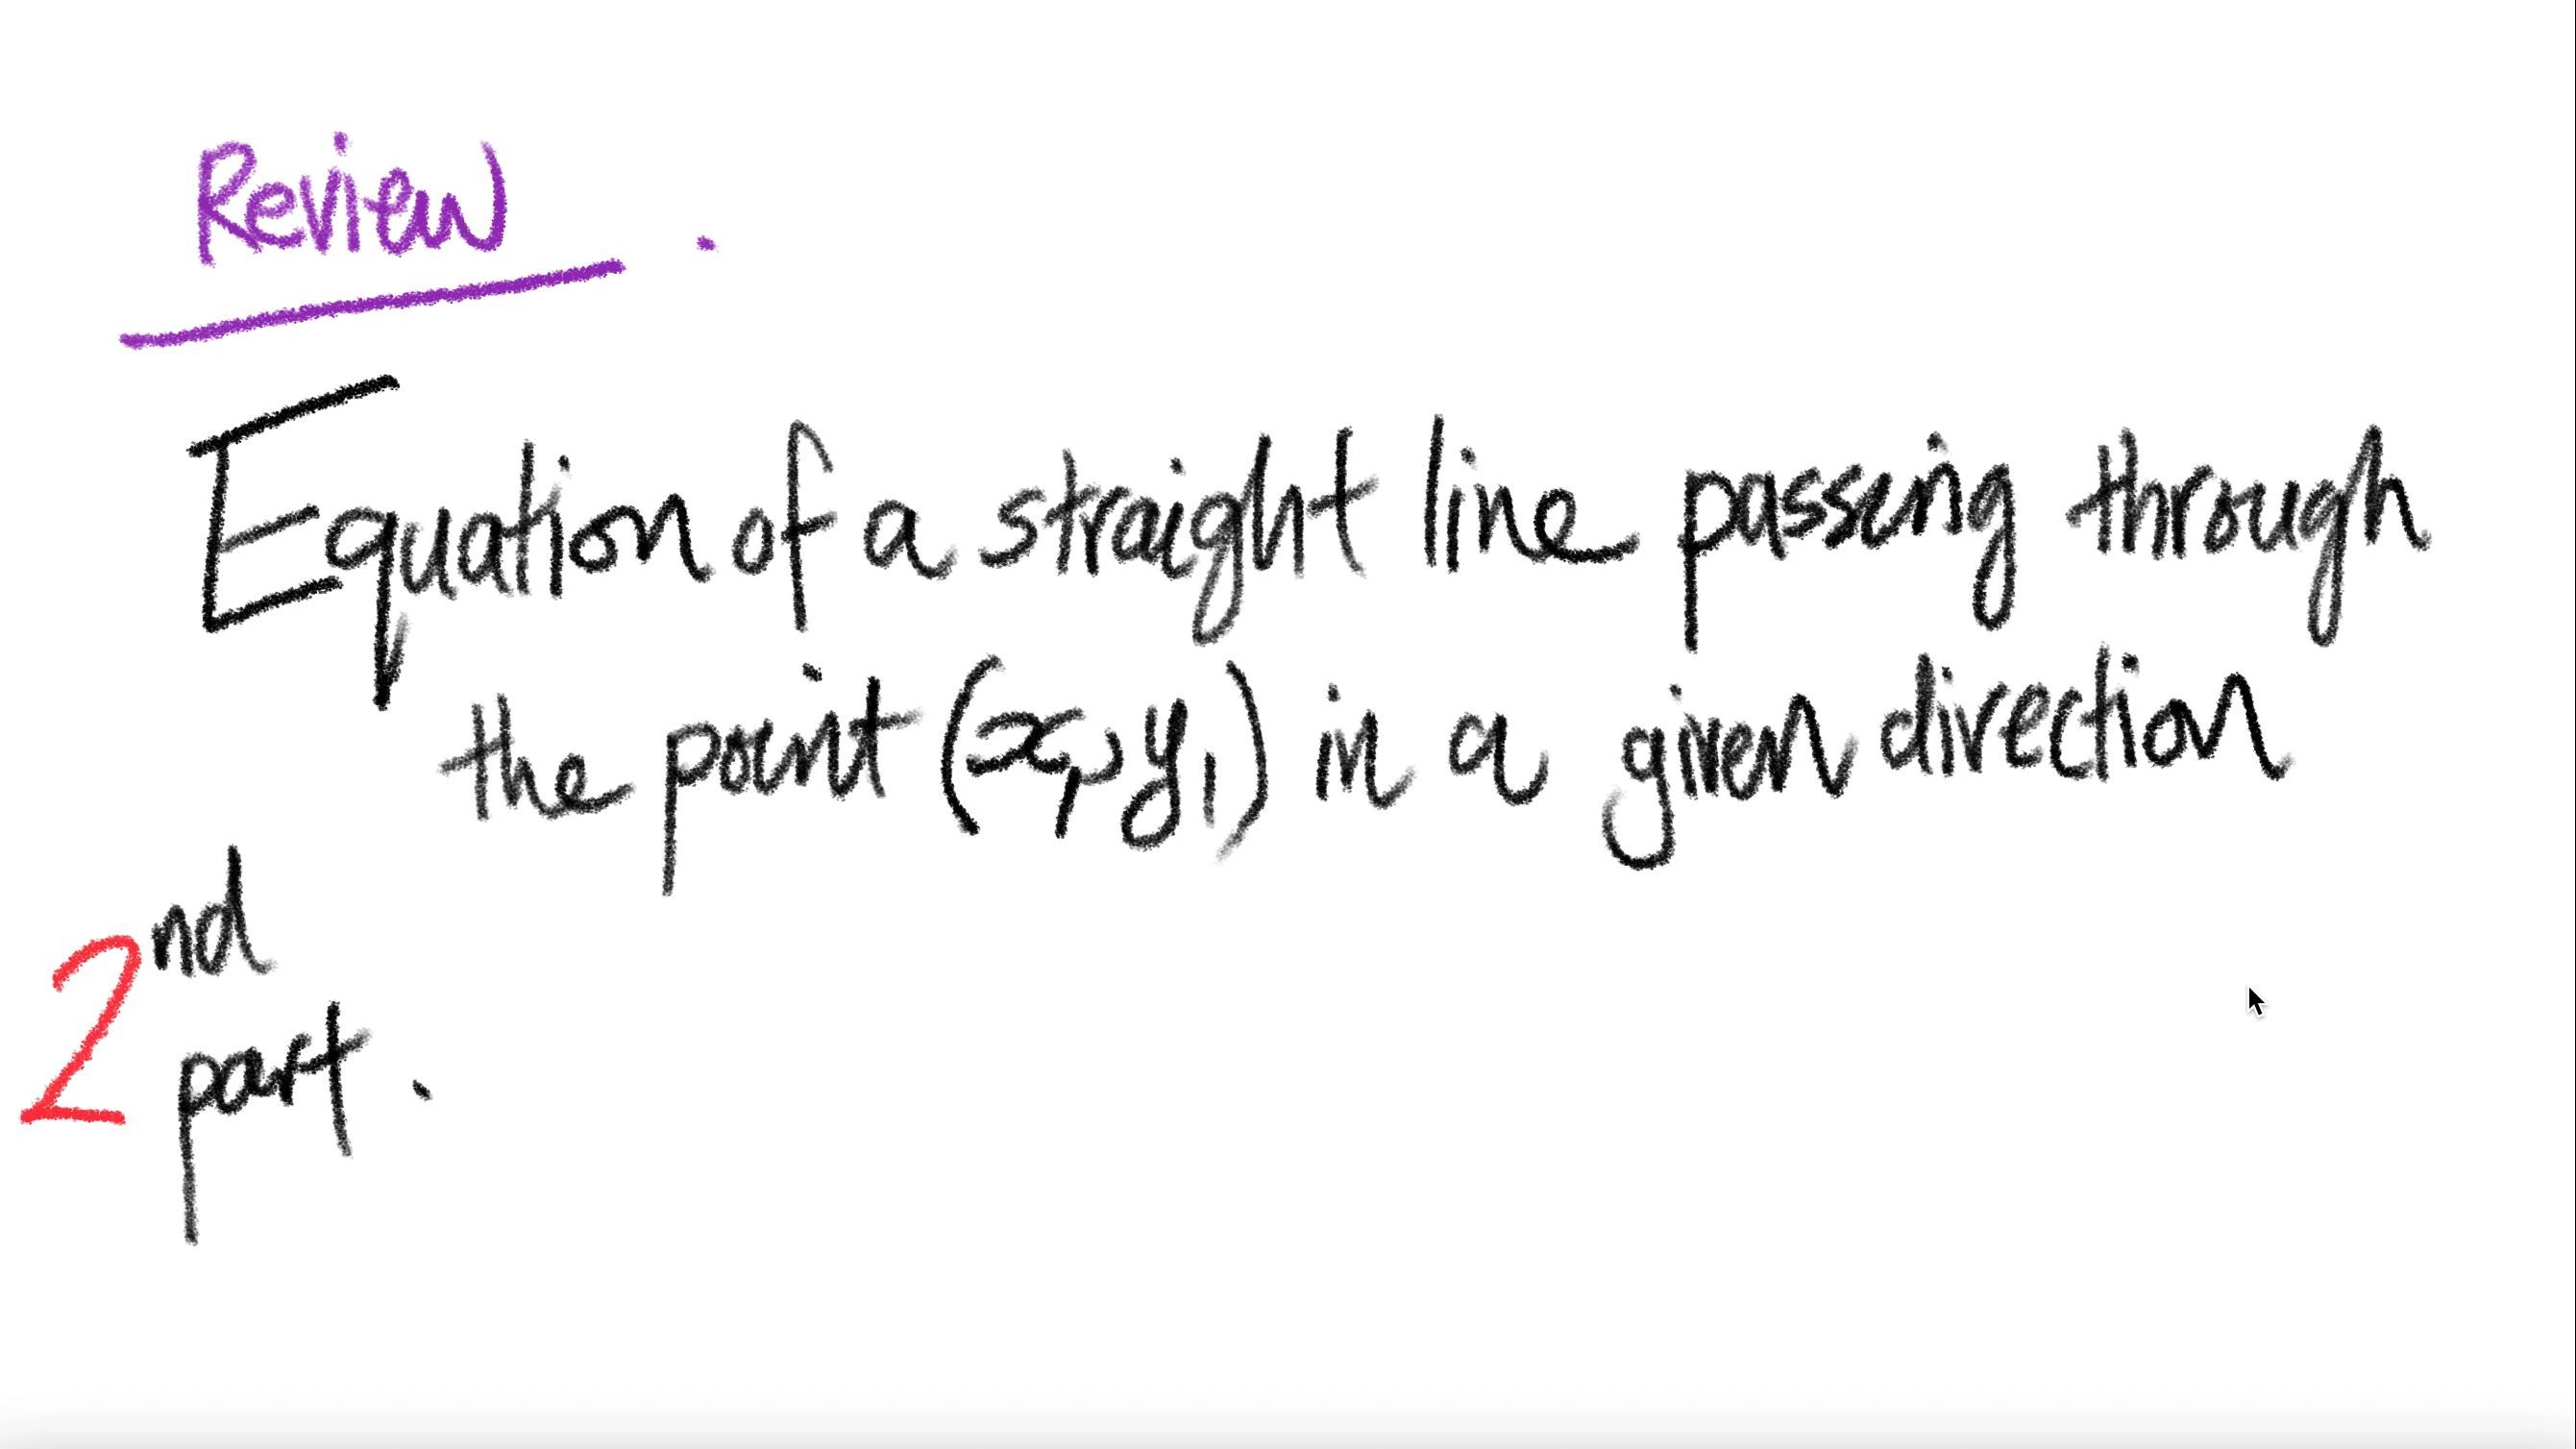 Review .
Equation of a straight line passing through
the point (x₁, y₁) in a given direction
2nd
part .